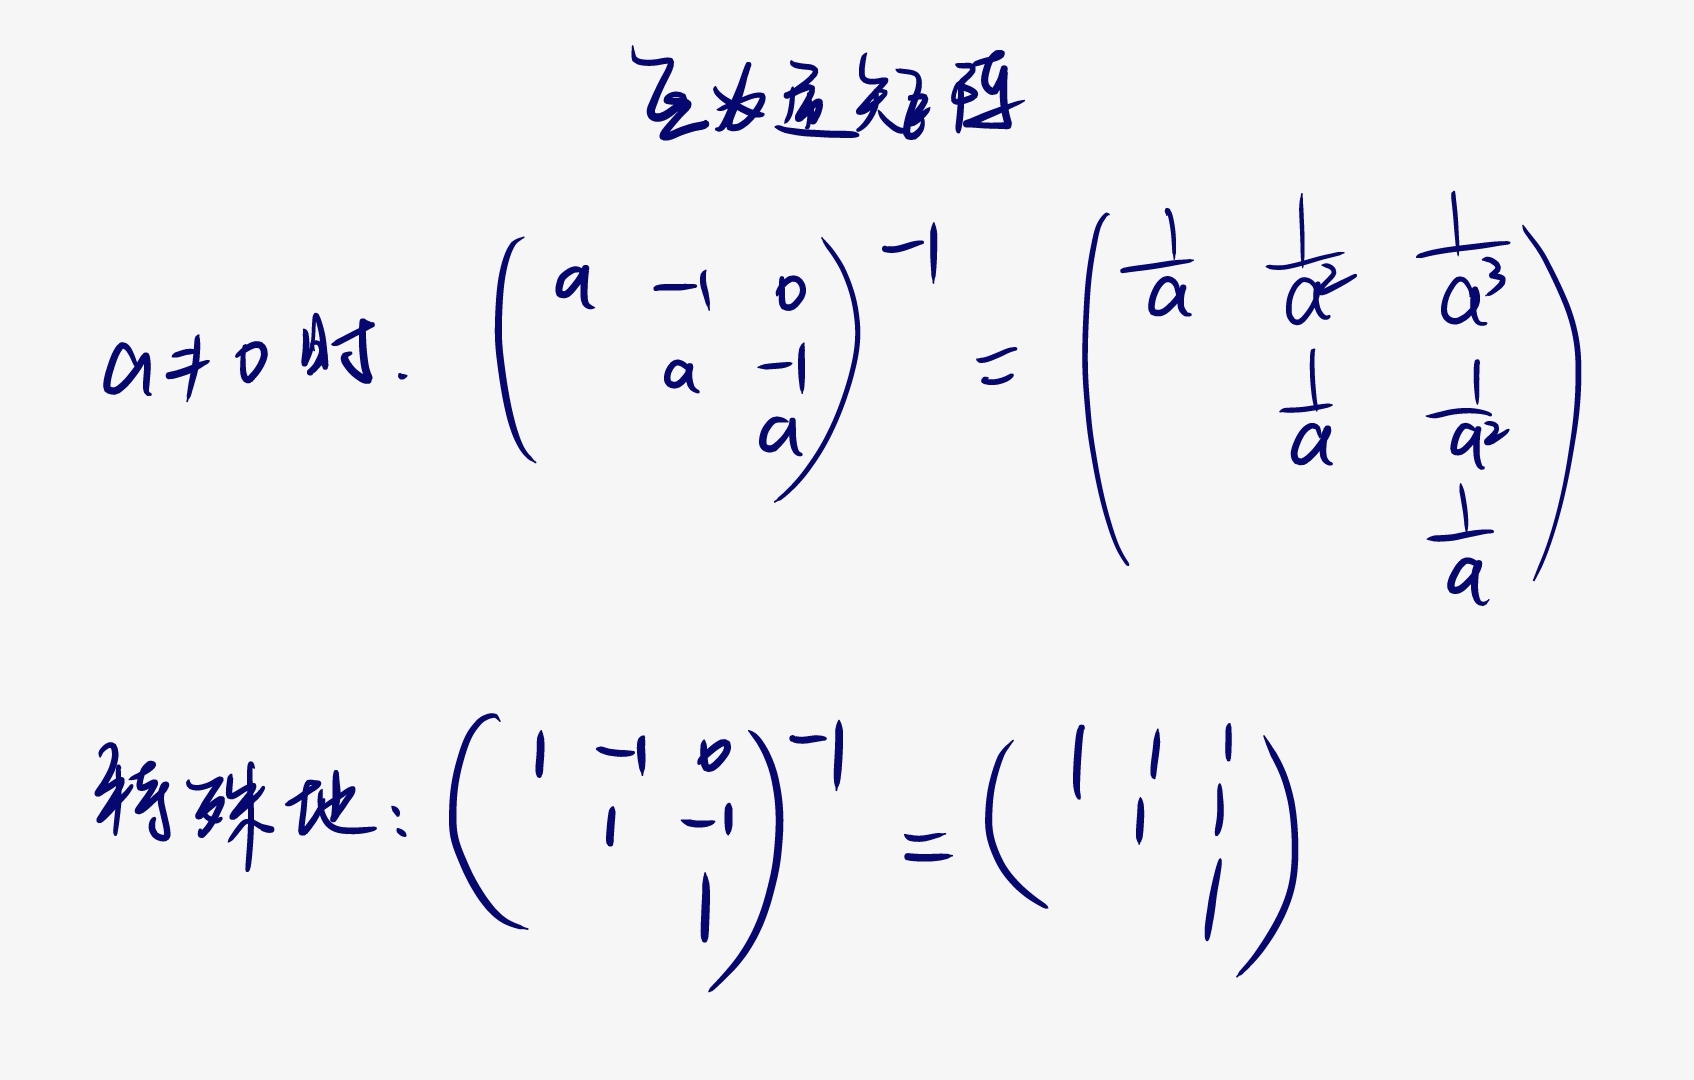 互为逆矩阵
a≠0时. $\begin{pmatrix} a & -1 & 0 \\ & a & -1 \\ & & a \end{pmatrix}^{-1} = \begin{pmatrix} \frac{1}{a} & \frac{1}{a^2} & \frac{1}{a^3} \\ & \frac{1}{a} & \frac{1}{a^2} \\ & & \frac{1}{a} \end{pmatrix}$
特殊地: $\begin{pmatrix} 1 & -1 & 0 \\ & 1 & -1 \\ & & 1 \end{pmatrix}^{-1} = \begin{pmatrix} 1 & 1 & 1 \\ & 1 & 1 \\ & & 1 \end{pmatrix}$